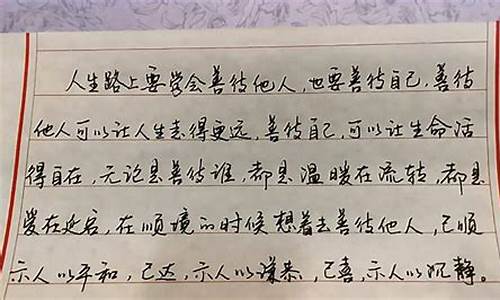 人生路上要学会善待他人，也要善待自己，善待
他人可以让人生走得更远，善待自己，可以让生命活
得自在，无论是善待谁，都是温暖在流转，都是
爱在延宕，在顺境的时候想着去善待他人，己顺
示人以平和，己达，示人以谦恭，己喜，示人以沉静。